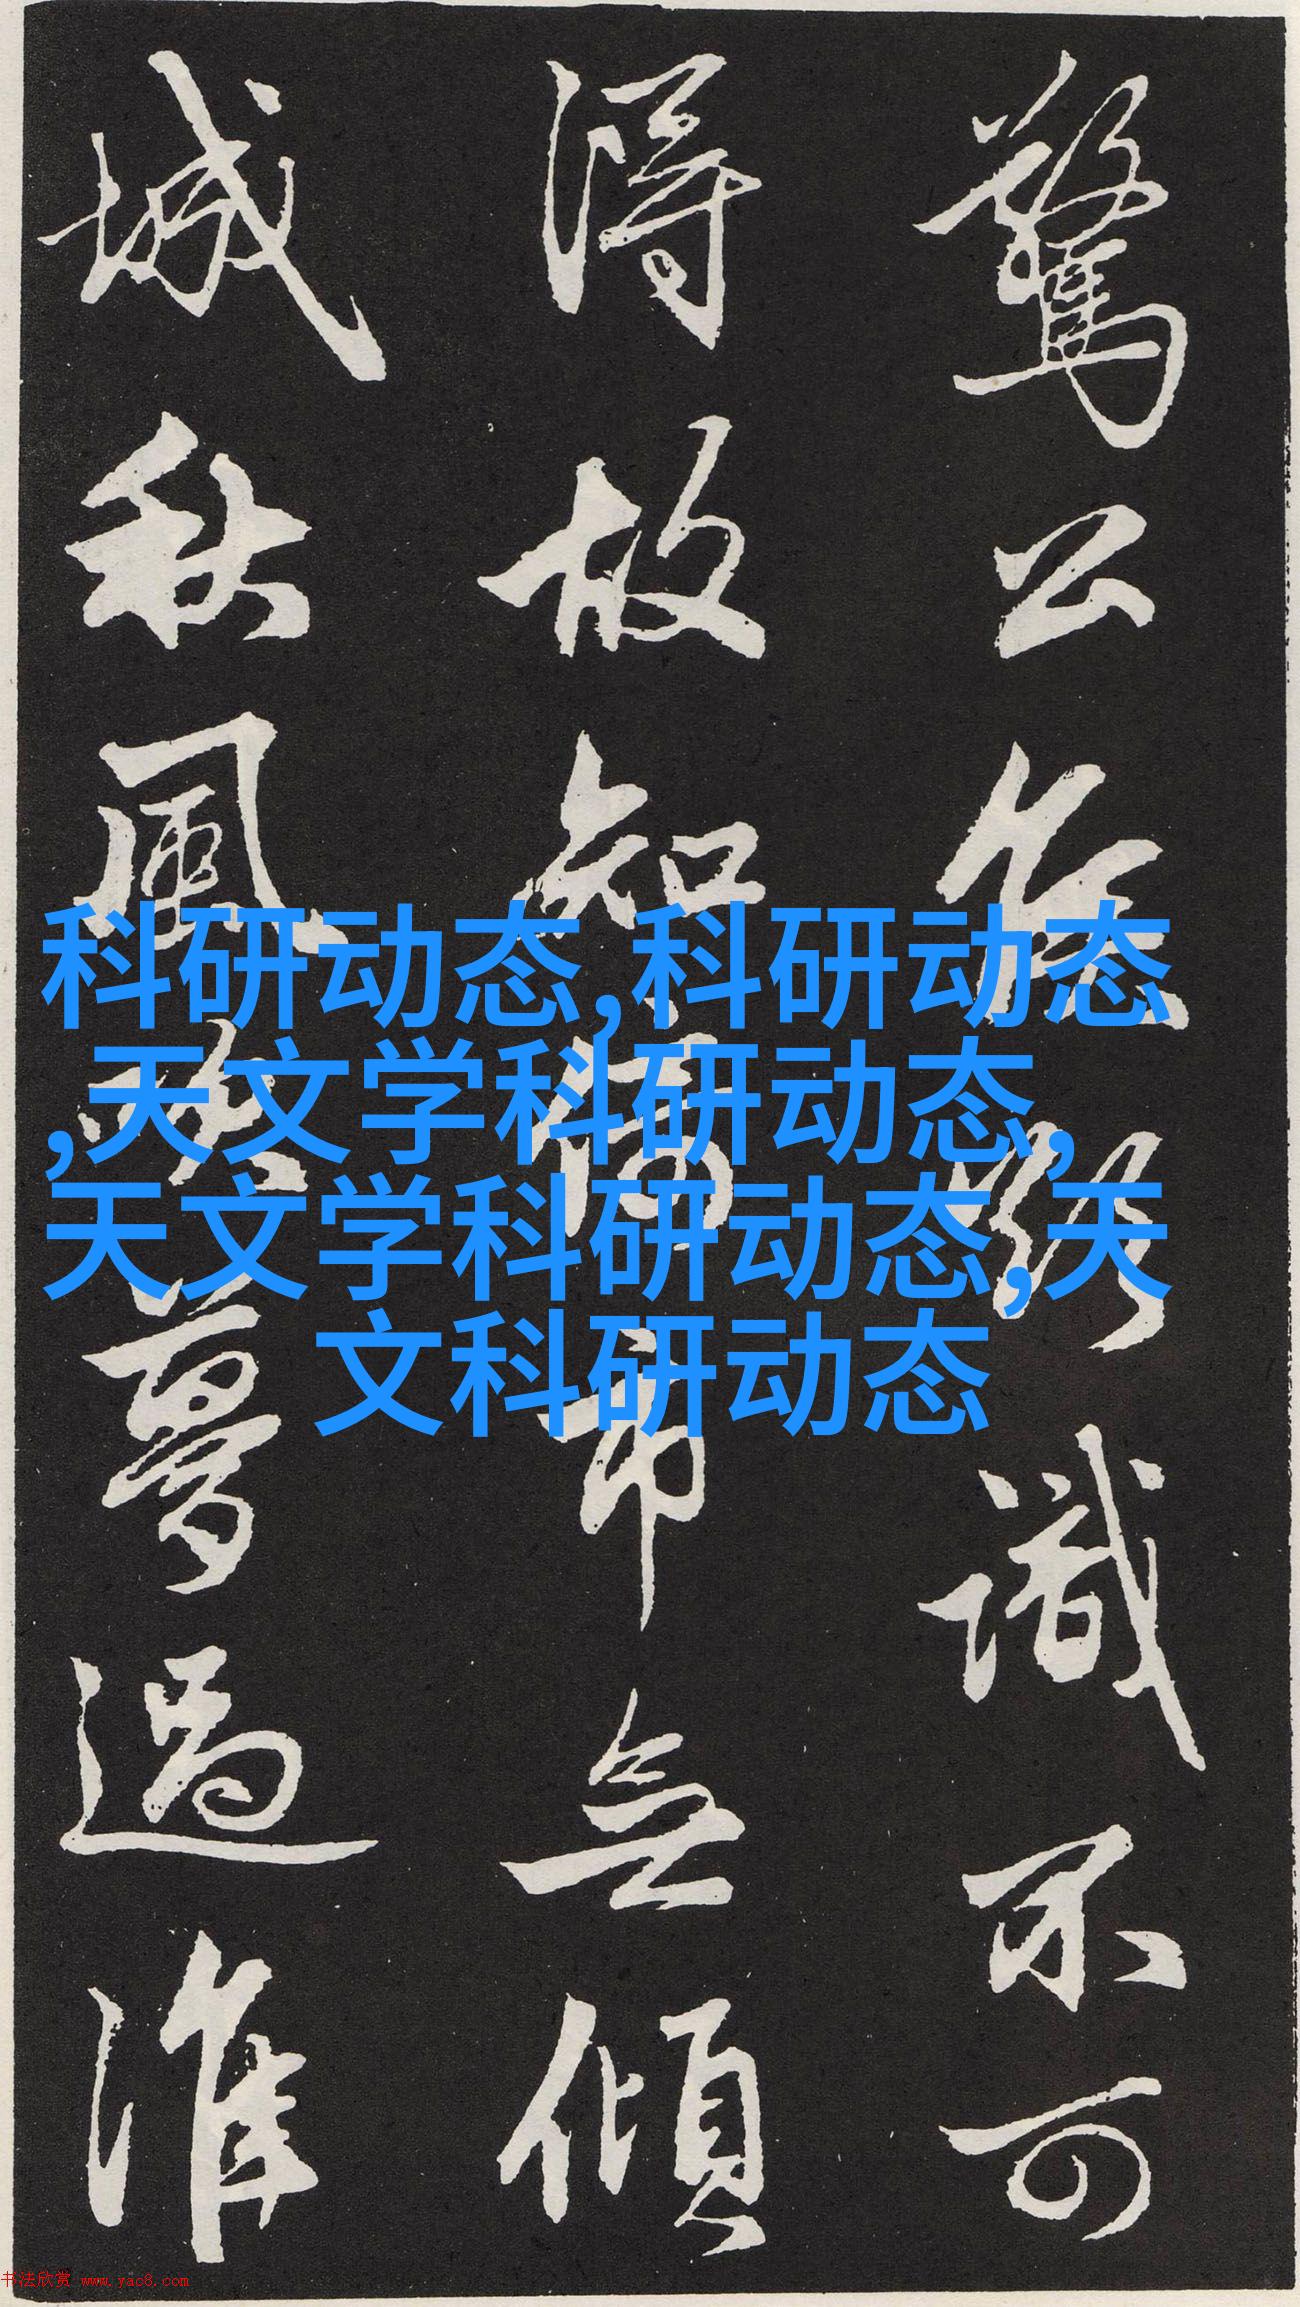 驚公侯 識不可
得故知 市無傾
城秋風 夢過淮
科研动态,科研动态
,天文学科研动态,
天文学科研动态,天
文科研动态
书法欣赏 www.yac8.com